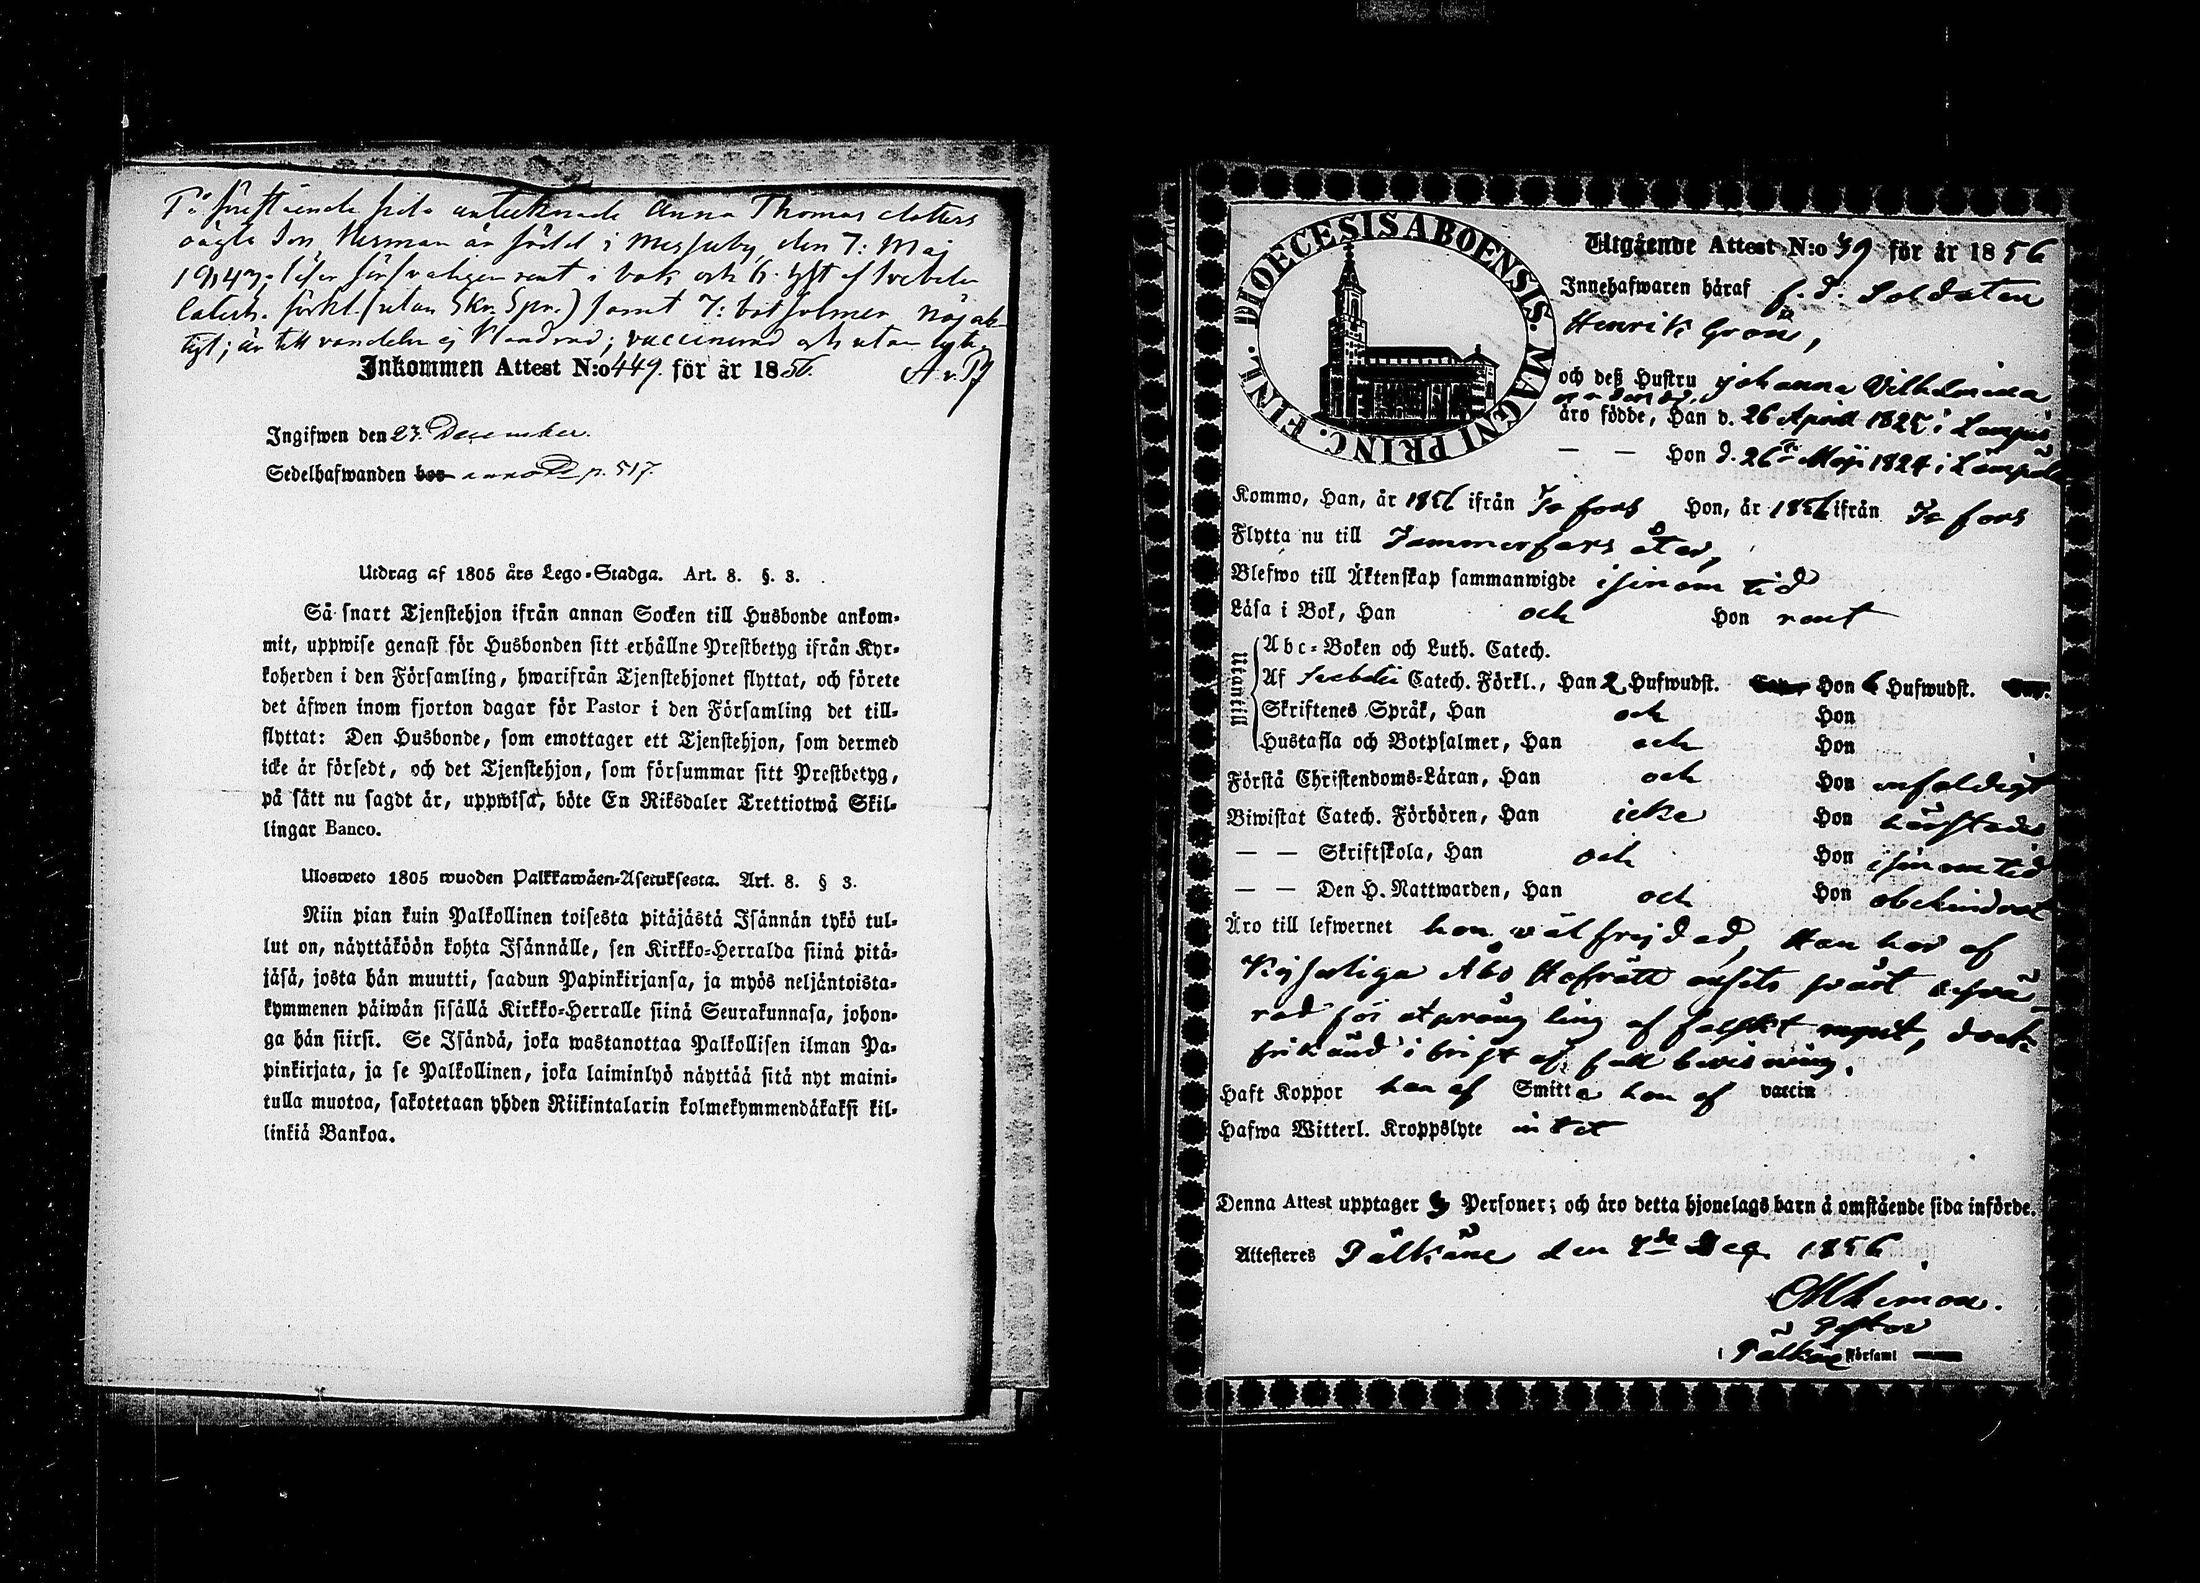 På förestående sida antecknade Anna Thomas dotters
oägta Son, Herman är född i Messuby, den 7: Maj
1843; läser försvarligen rent i bok och 6. hfst af Svebelii
Catech. förkl. (utan Skr. Spr.) samt 7: botpsalmer nöjak-
tigt; är till vandeln ej klandrad; vaccinerad och utan lyte.
Inkommen Attest N:o 449. för år 1856.
Ingifwen den 23. December.
Sedelhafwanden hos p. 517.
Utdrag af 1805 års Lego-Stadga. Art. 8. §. 3.
Så snart Tjenstehjon ifrån annan Socken till Husbonde ankom-
mit, uppwise genast för Husbonden sitt erhållne Prestbetyg ifrån Kyr-
koherden i den Församling, hwarifrån Tjenstehjonet flyttat, och förete
det äfwen inom fjorton dagar för Pastor i den Församling det till-
flyttat: Den Husbonde, som emottager ett Tjenstehjon, som dermed
icke är försedt, och det Tjenstehjon, som försummar sitt Prestbetyg,
på sätt nu sagdt är, uppwisa, böte En Riksdaler Trettiotwå Skil-
lingar Banco.
Ulosweto 1805 wuoden Palkkawäen-Asetuksesta. Art. 8. § 3.
Niin pian kuin Palkollinen toisesta pitäjästä Isännän tykö tul-
lut on, näyttäköön kohta Isännälle, sen Kirkko-Herralda siinä pitä-
jäsä, josta hän muutti, saadun Papinkirjansa, ja myös neljäntoista-
kymmenen päiwän sisällä Kirkko-Herralle siinä Seurakunnasa, johon-
ga hän siirsi. Se Isändä, joka wastanottaa Palkollisen ilman Pa-
pinkirjata, ja se Palkollinen, joka laiminlyö näyttää sitä nyt maini-
tulla muotoa, sakotetaan yhden Riikintalarin kolmekymmendäkaksi kil-
linkiä Bankoa.
DIOECESIS ABOENSIS. MAGNI PRINC. FINL.
Utgående Attest N:o 49 för år 1856
Innehafwaren häraf f. d. Soldaten
Henrik Grön,
och deß Hustru Johanna Vilhelmina
äro födde, Han d. 26 April 1825 i
— — Hon d. 26 Maji 1824 i Lämpälä
Kommo, Han, år 1856 ifrån T:a fors Hon, år 1856 ifrån T:a fors
Flytta nu till Tammerfors åter,
Blefwo till Äktenskap sammanwigde i sinom tid
Läsa i Bok, Han och Hon rent
Utantill
Abc-Boken och Luth. Catech.
Af Svebelii Catech. Förkl., Han 2 Hufwudst. Hon 6 Hufwudst.
Skriftenes Språk, Han och Hon
Hustafla och Botpsalmer, Han och Hon
Förstå Christendoms-Läran, Han och Hon enfaldigt
Biwistat Catech. Förhören, Han icke Hon härstädes
— — Skriftskola, Han och Hon i sinom tid
— — Den H. Nattwarden, Han och Hon obehindrat
Äro till lefwernet hon välfrejdad, Han har af
Kejserliga Åbo Hofrätt ansets svårt besvä-
rad för utprångling af falskt mynt, dock
frikänd i brist af full bevisning.
Haft Koppor han af Smitta hon af vaccin
Hafwa Witterl. Kroppslyte intet
Denna Attest upptager Personer; och äro detta hjonelags barn å omstående sida införde.
Attesteres Pälkäne den 8de Dec. 1856
Pastor
i Pälkäne Församl